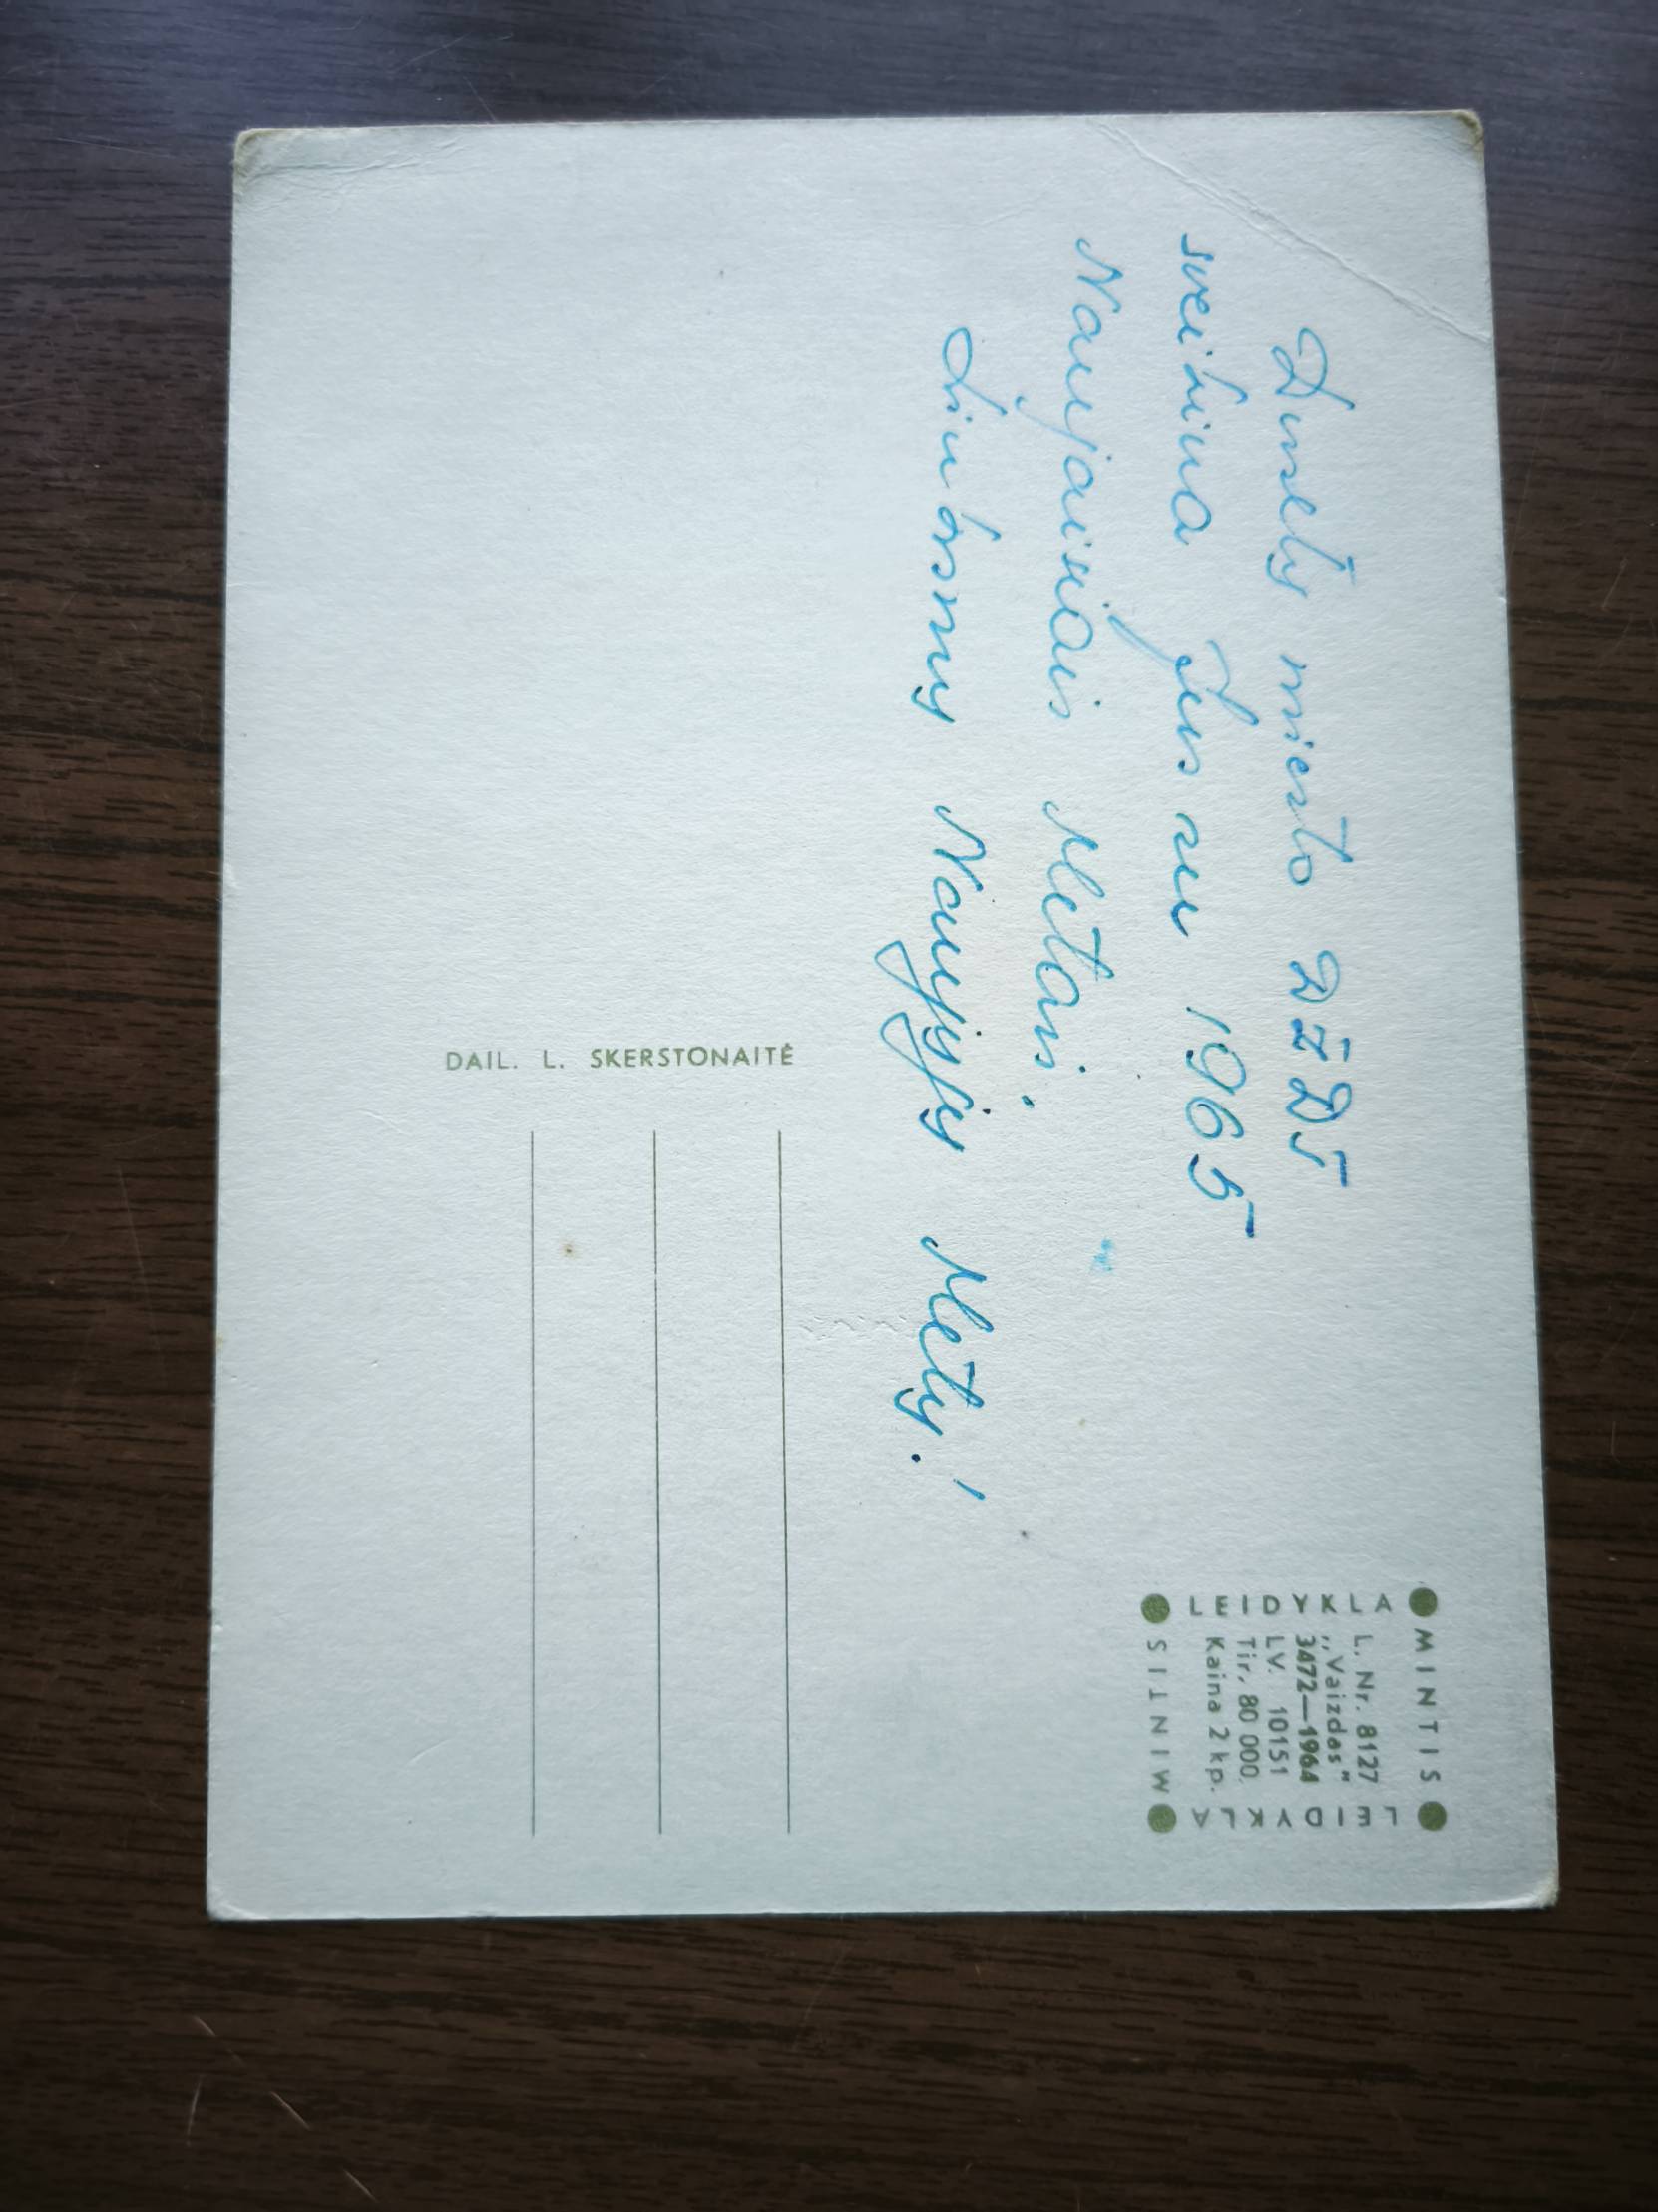 Dusetų miesto DŽDT
sveikina Jus su 1965
Naujaisiais Metais.
Linksmų Naujųjų Metų!
MINTIS
LEIDYKLA
L. Nr. 8127
„Vaizdas"
3472—1964
LV. 10151
Tir. 80 000.
Kaina 2 kp.
LEIDYKLA
MINTIS
DAIL. L. SKERSTONAITĖ